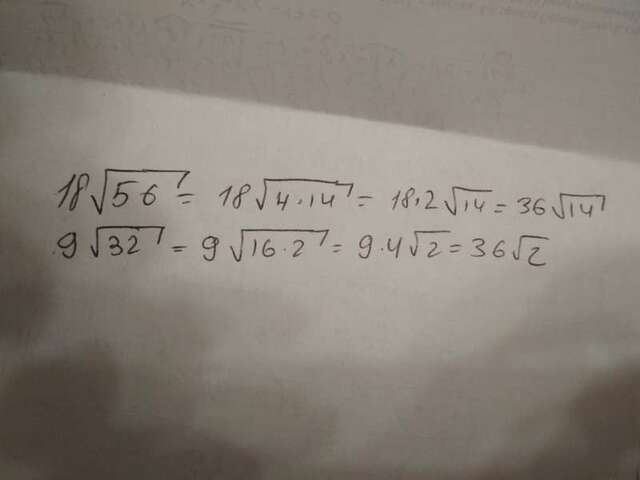 18√56 = 18√4·14 = 18·2√14 = 36√14
9√32 = 9√16·2 = 9·4√2 = 36√2